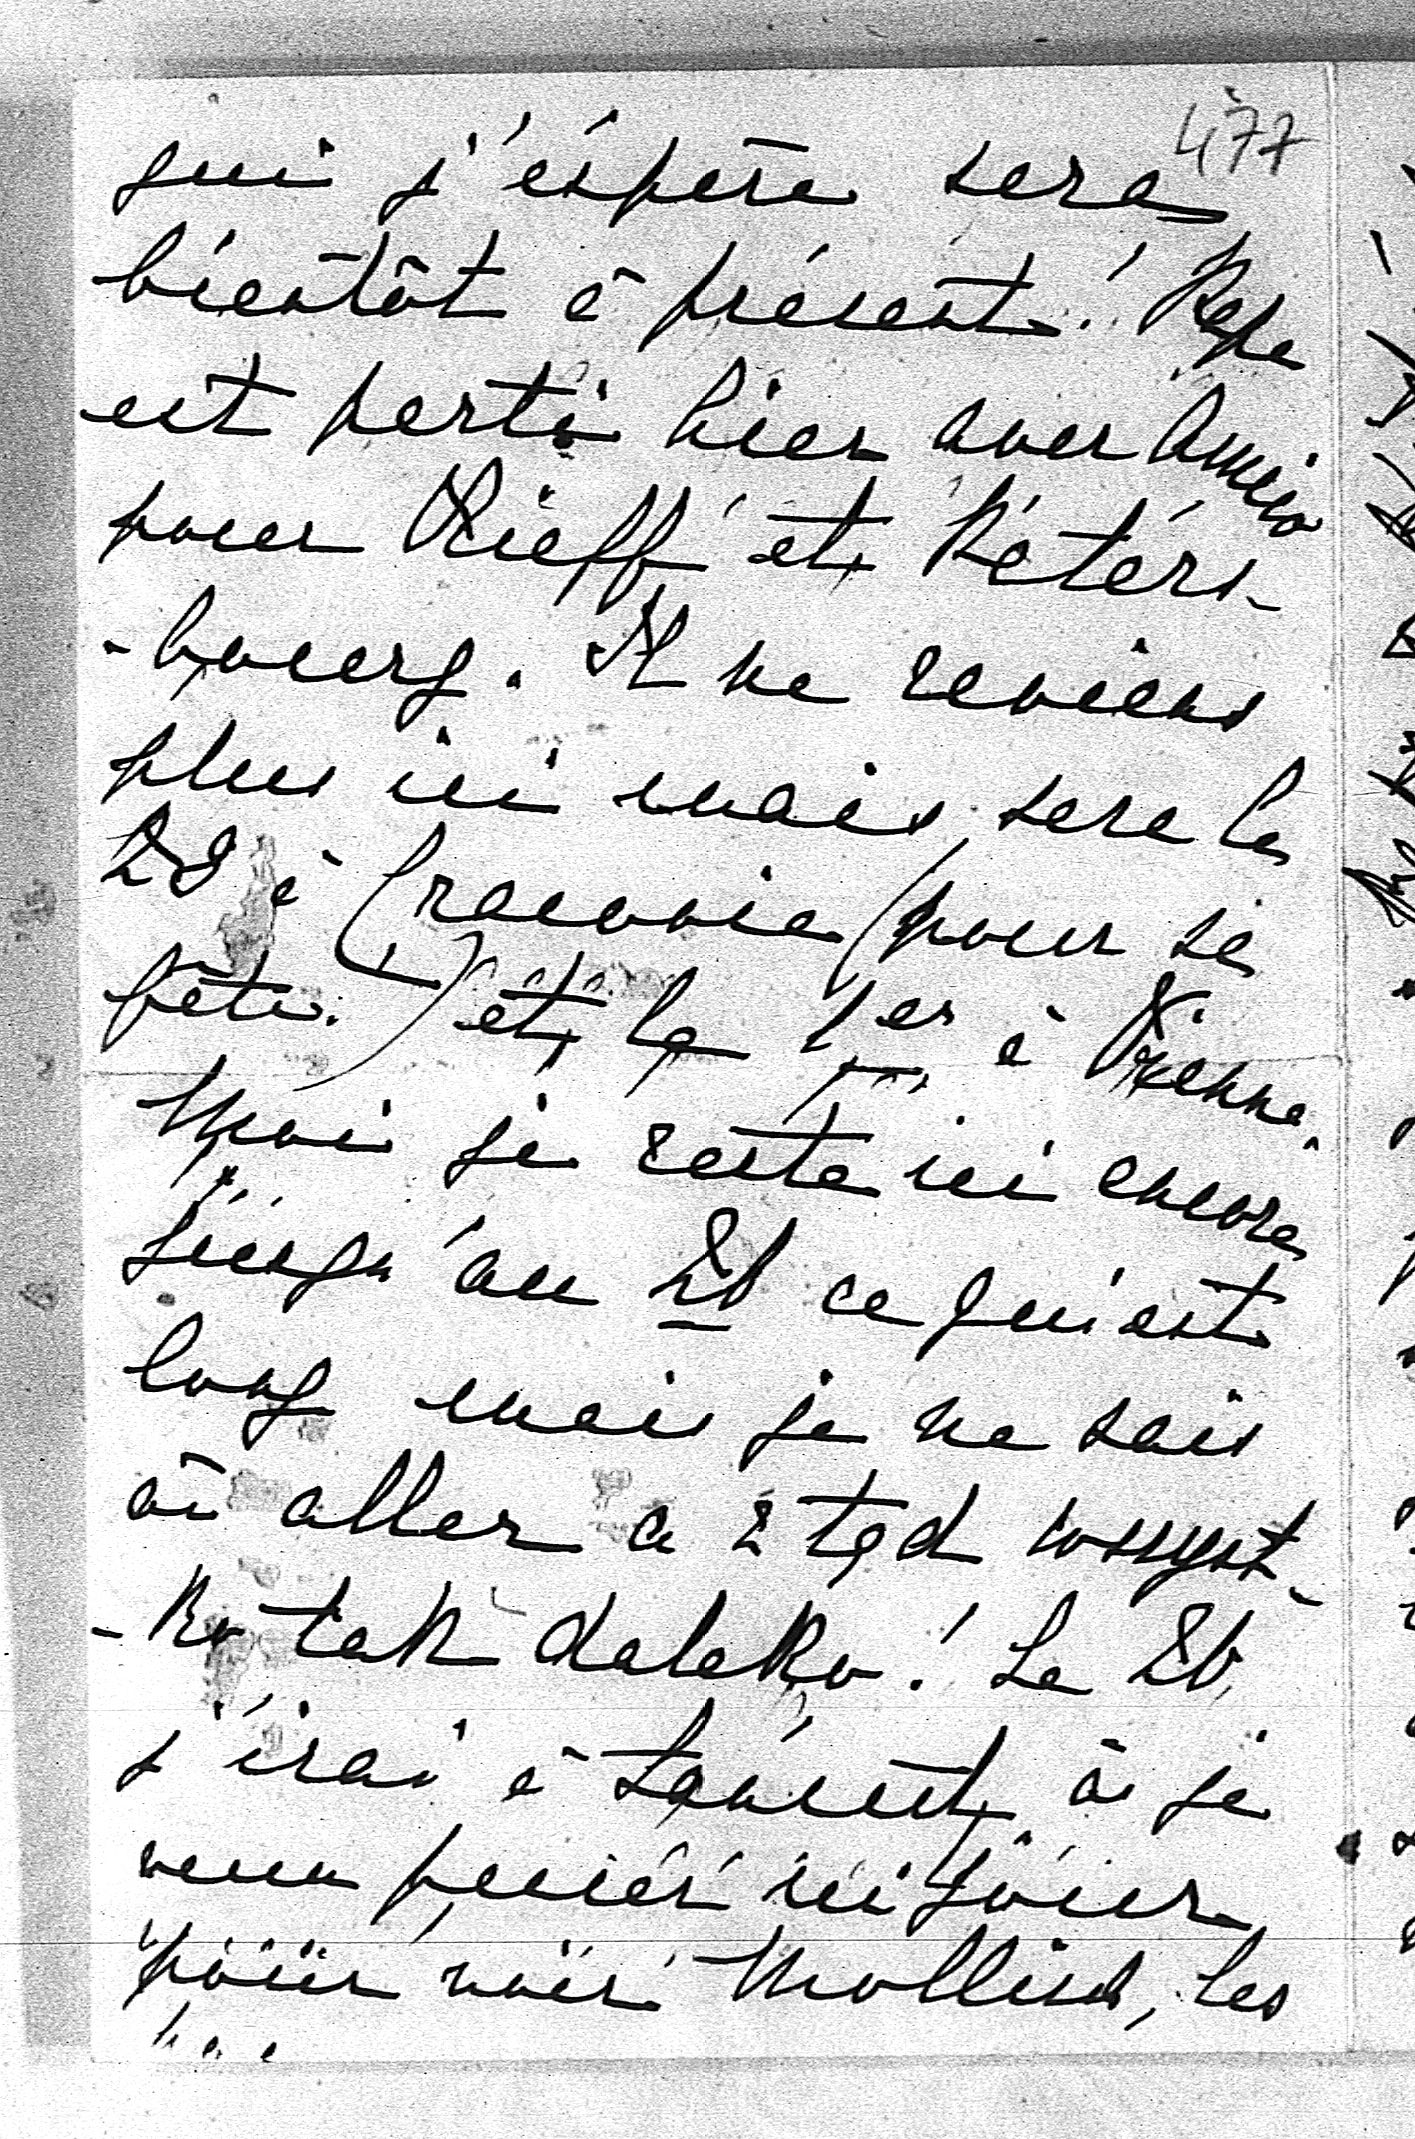 477
qui j'éspère sera
bientôt à présent! Papa
est parti hier avec
pour Kieff et Péters-
-bourg. Il ne reviens
plus ici mais sera le
28 à Cracovie (pour sa
fête.) et le 1er à Vienne.
Moi je reste ici encore
jusqu'au 26 ce qui est
long mais je ne sais
où aller a z tąd wszyst-
-ko tak daleko! Le 26
j'irai à Łańcut où je
veux passer un jour
pour voir les